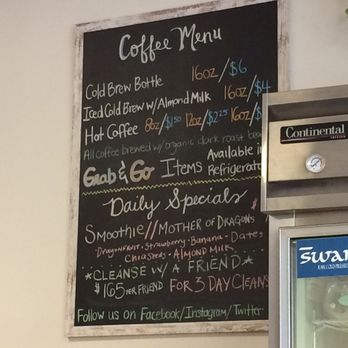 Coffee Menu
Cold Brew Bottle 16oz/$6
Iced Cold Brew w/ Almond Milk 16oz/$4
Hot Coffee 8oz/$1.50 12oz/$2.25 16oz/$
All coffee brewed with organic dark roast
Grab & Go Items Available in
Refrigerator
Daily Specials
Smoothie // Mother of Dragons
-Dragonfruit-Strawberry-Banana-Dates
-Chia Seeds-Almond Milk
*Cleanse w/ a Friend*
$165 per friend for 3 Day Cleanse
Follow us on Facebook/Instagram/Twitter
Continental
swan